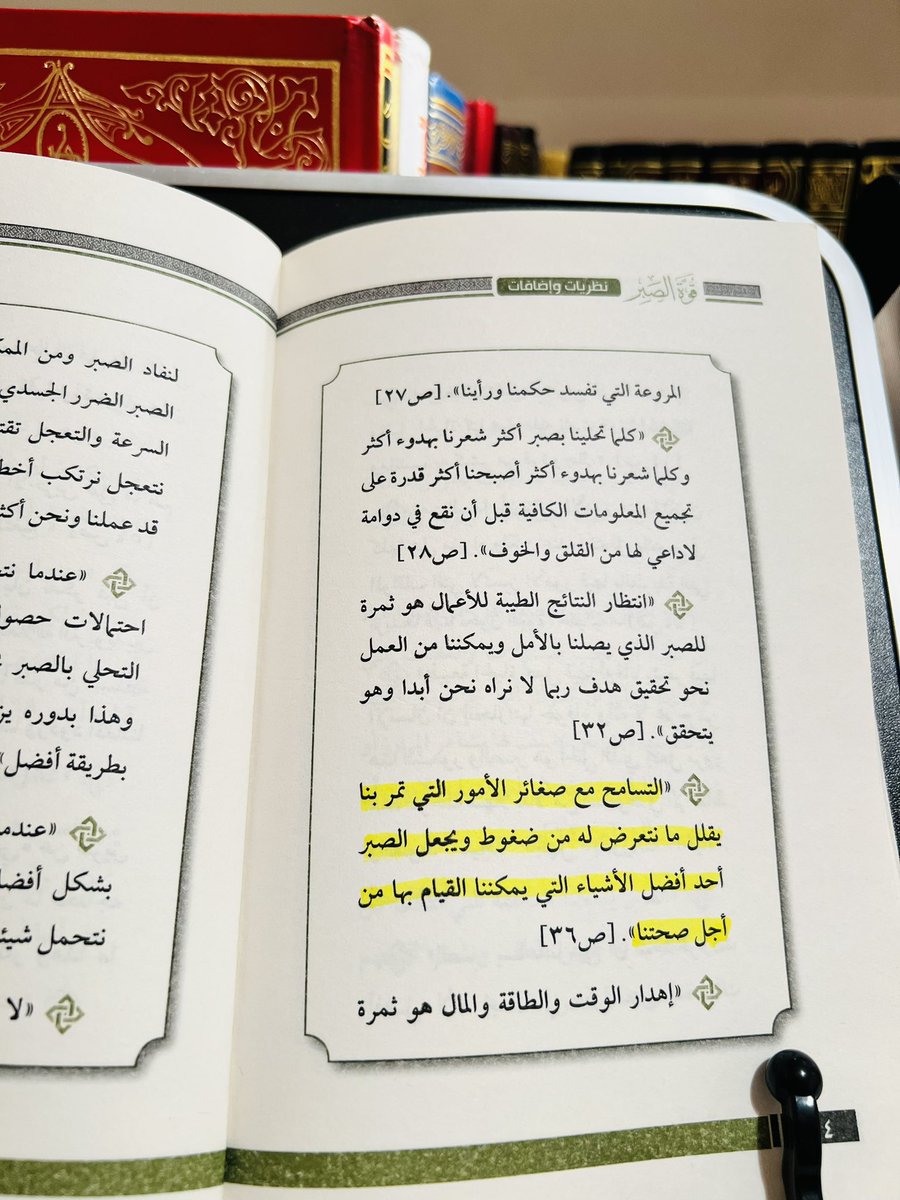 قوة الصبر نظريات وإضافات
المروعة التي تفسد حكمنا ورأينا». [ص٢٧]
«كلما تحلينا بصبر أكثر شعرنا بهدوء أكثر
وكلما شعرنا بهدوء أكثر أصبحنا أكثر قدرة على
تجميع المعلومات الكافية قبل أن نقع في دوامة
لاداعي لها من القلق والخوف». [ص٢٨]
«انتظار النتائج الطيبة للأعمال هو ثمرة
للصبر الذي يصلنا بالأمل ويمكننا من العمل
نحو تحقيق هدف ربما لا نراه نحن أبدا وهو
يتحقق». [ص٣٢]
«التسامح مع صغائر الأمور التي تمر بنا
يقلل ما نتعرض له من ضغوط ويجعل الصبر
أحد أفضل الأشياء التي يمكننا القيام بها من
أجل صحتنا». [ص٣٦]
«إهدار الوقت والطاقة والمال هو ثمرة
٤
لنفاد الصبر ومن
الصبر الضرر الجسدي
السرعة والتعجل
نتعجل نرتكب
قد عملنا ونحن
«عندما
احتمالات
التحلي بالصبر
وهذا بدوره
بطريقة أفضل»
بشكل
نتحمل
«لا